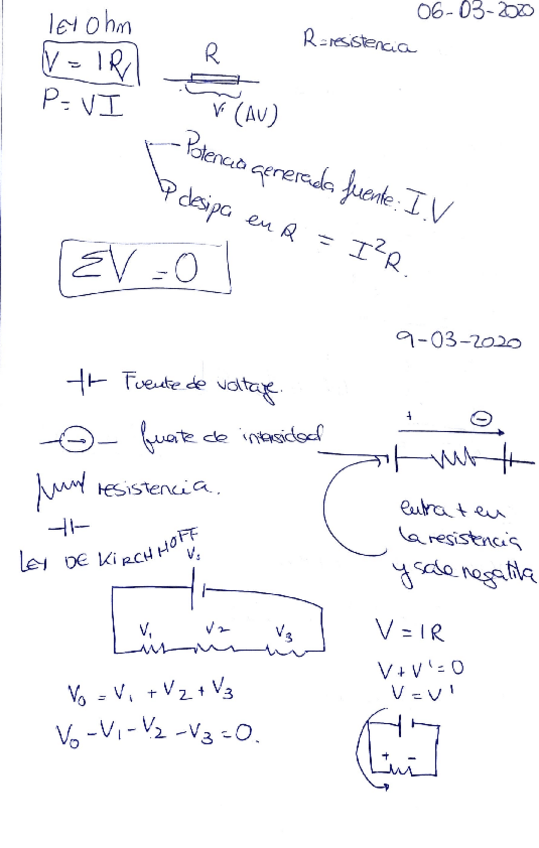 06-03-2020
ley Ohm
V = IR
R
R=resistencia
P= VI
V (ΔV)
Potencia generada fuente: I.V
P desipa en R = I²R.
ΣV = 0
9-03-2020
Fuente de voltaje.
+ -
fuente de intensidad
resistencia.
entra + en
la resistencia
y sale negativa
LEY DE KIRCHHOFF
V₁ V2 V3
V = IR
V + V' = 0
V = V'
V₀ = V₁ + V2 + V3
V₀ - V₁ - V2 - V3 = 0.
+ -